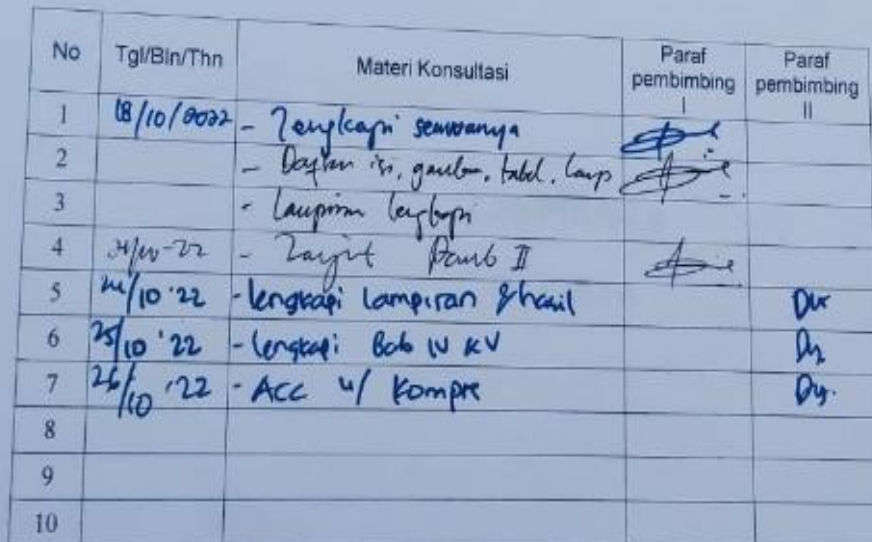 No Tgl/Bln/Thn Materi Konsultasi Paraf pembimbing I Paraf pembimbing II
1 18/10/2022 - Lengkapi semuanya
2 - Daftar isi, gambar, tabel, lamp
3 - Lampiran lengkapi
4 - Lanjut Pemb II
5 24/10 '22 - lengkapi lampiran & hasil
6 25/10 '22 - lengkapi Bab IV & V
7 26/10 '22 - ACC u/ Kompre
8
9
10